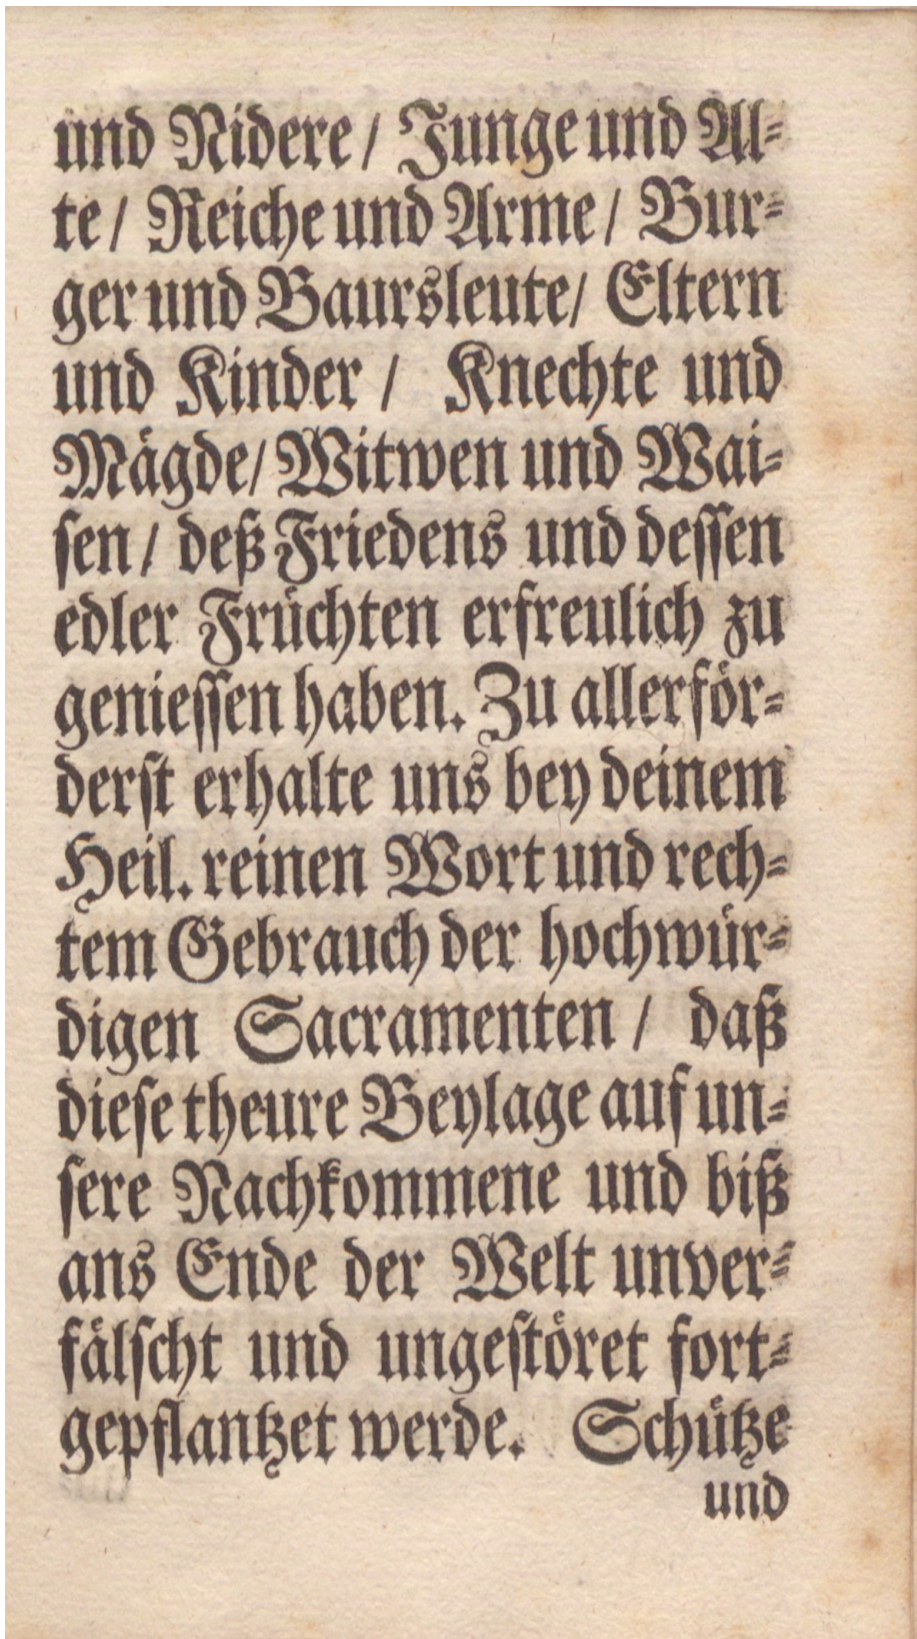 und Nidere / Junge und Al-
te / Reiche und Arme / Bur-
ger und Baursleute / Eltern
und Kinder / Knechte und
Mägde / Witwen und Wai-
sen / deß Friedens und dessen
edler Früchten erfreulich zu
geniessen haben. Zu allerför-
derst erhalte uns bey deinem
Heil. reinen Wort und rech-
tem Gebrauch der hochwür-
digen Sacramenten / daß
diese theure Beylage auf un-
sere Nachkommene und biß
ans Ende der Welt unver-
fälscht und ungestöret fort-
gepflantzet werde. Schütze
und